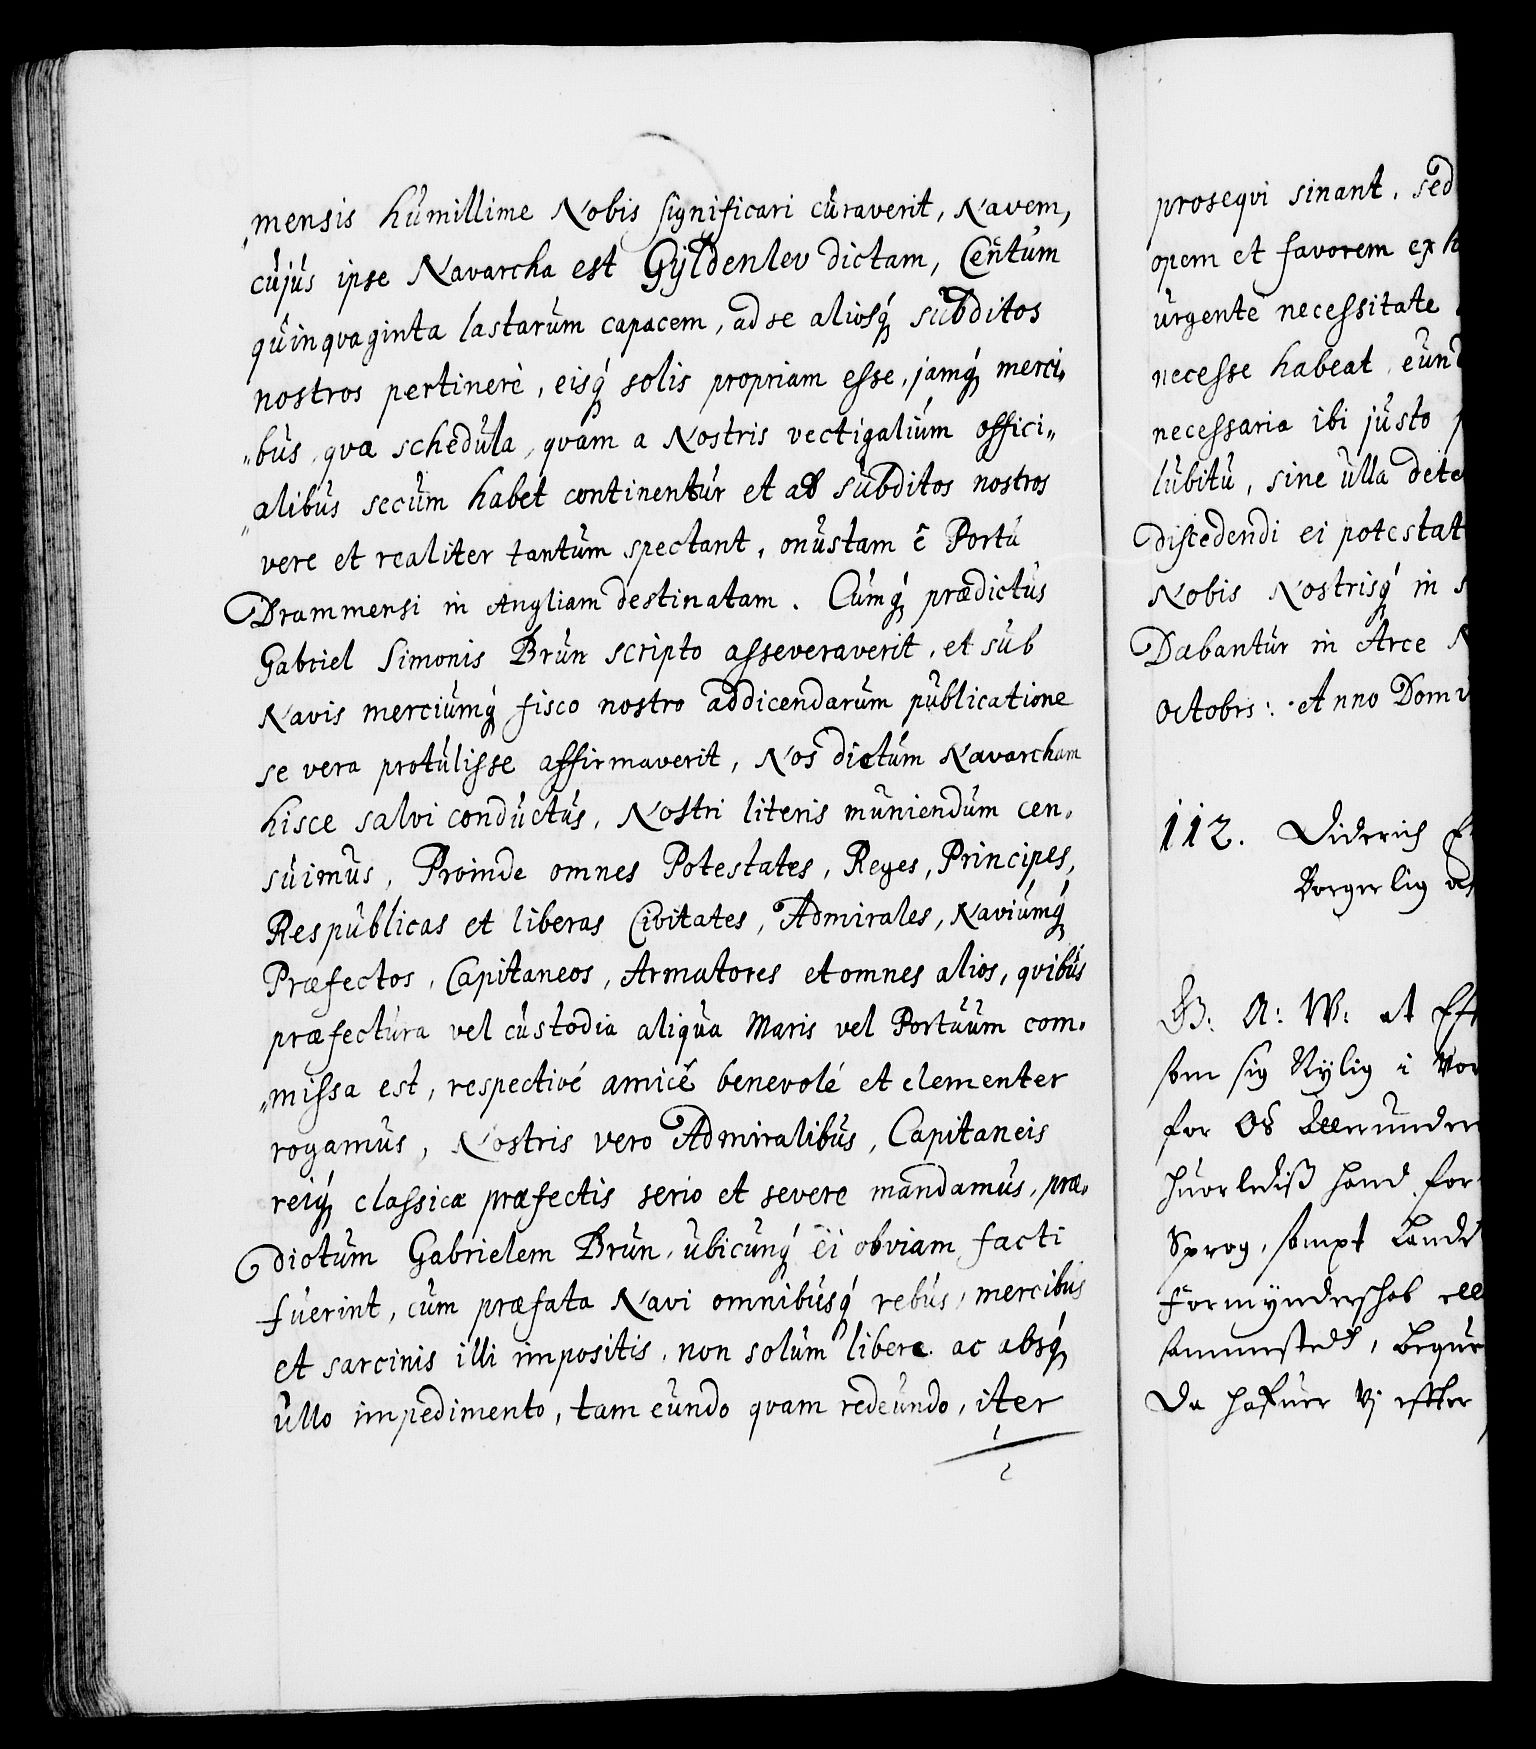 mensis humillime Nobis significari curaverit, Navem,
cujus ipse Navarcha est Gyldenlev dictam, Centum
quinqvaginta lastarum capacem, ad se aliosq́ subditos
nostros pertinere, eisq́ solis propriam esse, jamq́ merci„
„bus, qvæ schedula, qvam a Nostris vectigalium offici„
„alibus secum habet continentur et ad subditos nostros
vere et realiter tantum spectant, onustam ê Portu
Drammensi in Angliam destinatam. Cumq́ prædictus
Gabriel Simonis Brun scripto asseveraverit, et sub
Navis merciumq́ fisco nostro addicendarum publicatione
se vera protulisse affirmaverit, Nos dictum Navarcham
hisce salvi conductus, Nostri literis muniendum cen„
suimus, Proinde omnes Potestates, Reges, Principes,
Respublicas et liberas Civitates, Admirales, Naviumq́
Præfectos, Capitaneos, Armatores et omnes alios, qvibus
præfectura vel custodia aliqua Maris vel Portuum com„
„missa est, respectivé amicé benevolé et clementer
rogamus, Nostris vero Admiralibus, Capitaneis
reiq́ classicæ præfectis serio et severe mandamus, præ„
dictum Gabrielem Brun, ubicunq́ ei obviam facti
fuerint, cum præfata Navi omnibusq́ rebus, mercibus
et sarcinis illi impositis, non solum libere ac absq́
ullo impedimento, tam eundo qvam redeundo, iter
proseqvi sinant, sed
opem et favorem ex
urgente necessitate
necesse habeat,
necessaria ibi justo
lubitu, sine ulla
discedendi ei
Nobis Nostrisq́ in
Dabantur in Arce
Octobrs: Anno
112. Diderich
Borgerlig
G: A: W: at
som sig Nylig i
for Os
huorledis hand for
Sprog, sampt
Formynderskab
sammesteds,
Da hafuer Vj effter